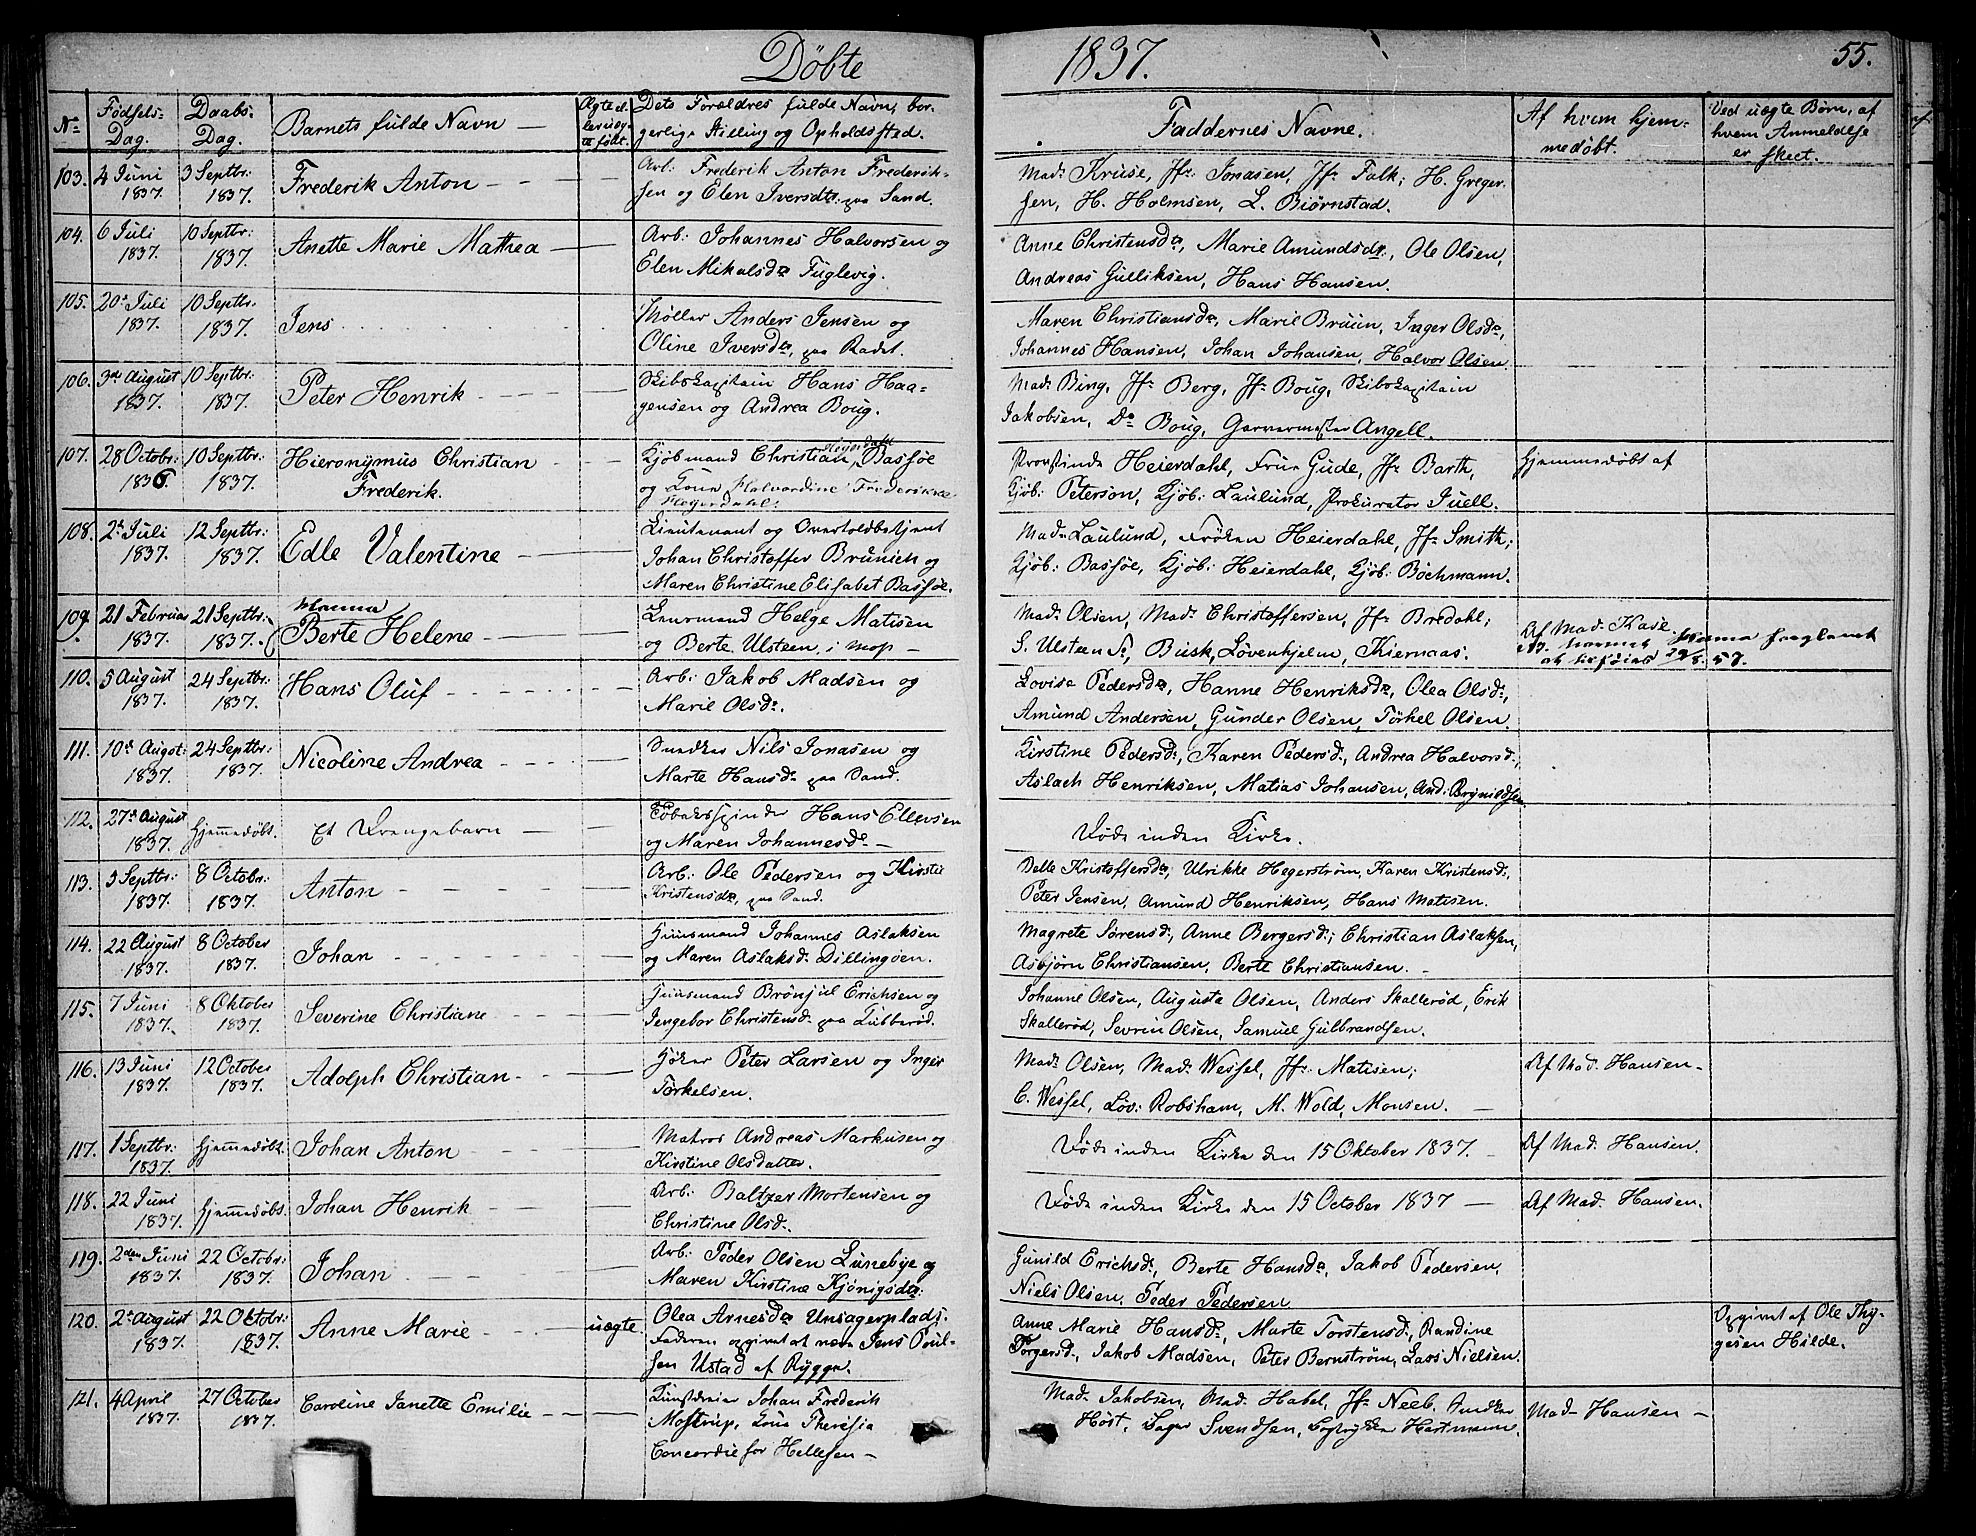 Döbte
1837.
55.
No
Födsels-
Dag.
Daabs-
Dag.
Barnets fulde Navn
Ægte el-
ler uæg-
te født.
Dets Forældres fulde Navn, bor-
gerlige Stilling og Opholdssted.
Faddernes Navne.
Af hvem hjem-
medøbt.
Ved uægte Børn, af
hvem Anmeldelse
er skeet.
103. 4 Juni 3 Septbr: Frederik Anton Arb: Frederik Anton Frederik- Mad: Kruse, Jfr: Jonasen, Jfr: Falk; H. Greger-
1837. 1837. sen og Elen Iversdr. paa Sand. sen, H. Holmsen, L. Biørnstad.
104. 6 Juli 10 Septbr: Anette Marie Mathea Arb: Johannes Halvorsen og Anne Christensdr, Marie Amundsdr, Ole Olsen,
1837. 1837. Elen Mikalsdr Fuglevig. Andreas Gulliksen, Hans Hansen.
105. 20 Juli 10 Septbr. Jens Møller Anders Jensen og Maren Christiansdr, Marie Bruun, Inger Olsdr,
1837. 1837. Oline Iversdr, paa Radet. Johannes Hansen, Johan Johansen, Halvor Olsen
106. 3die August 10 Septbr: Peter Henrik Skibskapitain Hans Haa- Mad: Bing, Jfr: Berg, Jfr: Boug, Skibskapitain
1837. 1837. gensen og Andrea Boug. Jakobsen, Do Boug, Garvermester Angell.
107. 28 Octobr: 10 Septbr: Hieronymus Christian Kjøbmand Christian Heyerdahl Bassøe Provstinde Heierdahl, Frue Gude, Jfr Barth, Hjemmedøbt af
1836. 1837. Frederik. og Kone Halvardine Frederikke Kjøb: Peterson, Kjøb: Laulund, Prokurator Juell.
Heyerdahl.
108. 2 Juli 12 Septbr: Edle Valentine Lieutenant og Overtoldbetjent Mad: Laulund, Frøken Heierdahl, Jfr: Smith;
1837. 1837. Johan Christoffer Brunich og Kjøb: Bassøe, Kjøb: Heierdahl, Kjøb: Bochmann.
Maren Christine Elisabet Bassøe.
109. 21 Februar 21 Septbr: Hanna Lensmand Helge Matisen Mad: Olsen, Mad: Christoffersen, Jfr: Bredahl; Af Mad: Kase
1837. 1837. Berte Helene og Berte Ulsteen, i Mos S. Ulsteen, Busk, Løvenhjelm, Kiernaas. NB. Navnet Hanna
110. 5 August 24 Septbr: Hans Oluf Arb: Jakob Madsen og Lovise Pedersdr, Hanne Henriksdr, Olea Olsdr,
1837. 1837. Marie Olsdr. Amund Andersen, Gunder Olsen, Torkel Olsen.
111. 10 Augst: 24 Septbr: Nicoline Andrea Snedker Nils Jonasen og Kirstine Pedersd:, Karen Pedersd:, Andrea Halvorsd:,
1837. 1837. Marte Hansdr paa Sand. Aslach Henriksen, Matias Johansen, And: Brynildsen
112. 27 August Hjemmedøbt. Et Drengebarn Tobaksspinder Hans Ellevsen Døde inden Kirke.
1837. og Maren Johannesdr
113. 3 Septbr: 8 Octobr: Anton Arb: Ole Pedersen og Kirstie Delle Kristoffersdr, Ulrikke Hegerstrøm, Karen Kristensd:,
1837. 1837. Kristensdr, paa Sand. Peter Jensen, Amund Henriksen, Hans Matisen.
114. 22 August 8 October Johan Huusmand Johannes Aslaksen Magrete Sørensd:, Anne Bergersd:; Christian Aslaksen,
1837. 1837. og Maren Aslaksd: Dillingöen. Asbjørn Christiansen, Berte Christiansen.
115. 7 Juni 8 Oktober Severine Christiane Huusmand Brönjul Erichsen og Johanne Olsen, Auguste Olsen, Anders Skallerød, Erik
1837. 1837. Ingebor Christensd: paa Tubberød. Skallerød, Sevrin Olsen, Samuel Gulbrandsen.
116. 13 Juni 12 October Adolph Christian Høker Peter Larsen og Inger Mad: Olsen, Mad: Wessel, Jfr: Matisen; Af Mad: Hansen
1837. 1837. Torkelsen. C. Wessel, Löv: Robsham, M. Wold, Monsen.
117. 1 Septbr: Hjemmedøbt. Johan Anton Matros Andreas Markusen og Døde inden Kirke den 15 Oktober 1837. Af Mad: Hansen.
1837. Kirstine Olsdatter.
118. 22 Juni Hjemmedøbt. Johan Henrik Arb: Baltzer Mortensen og Døde inden Kirke den 15 October 1837 Af Mad: Hansen.
1837. Christine Olsd:.
119. 2den Juni 22 Octobr: Johan Arb: Peder Olsen Lunebye og Gunild Erichsd:, Berte Hansdr, Jakob Pedersen,
1837. 1837. Maren Kirstine Kjönigsdr: Niels Olsen, Peder Pedersen
120. 2 August 22 Oktobr: Anne Marie uægte Olea Arnesdr Unsagerplads. Anne Marie Hansdr, Marte Torstensd:, Randine Opgivet af Ole Thy-
1837. 1837. Faderen opgivet at være Jens Poul- Torgersd:, Jakob Madsen, Peter Bernström, Lars Nielsen. gesen Hilde.
sen Ustad af Rygge.
121. 4 April 27 October Caroline Janette Emilie Kunstdreier Johan Frederik Mad: Jakobsen, Mad: Habel, Jfr: Neeb, Snedker Mad: Hansen
1837. 1837. Mostrup, Kone Theresia Höst, Bager Svendsen, Bogtrykker Hartmann.
Concordie for Hellesen